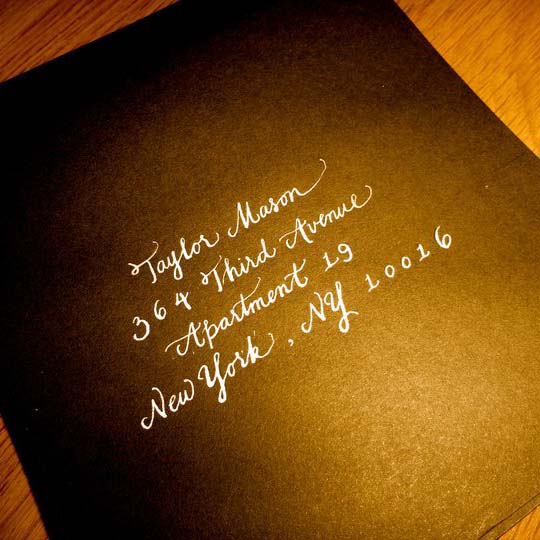 Taylor Mason
364 Third Avenue
Apartment 19
New York, NY 10016